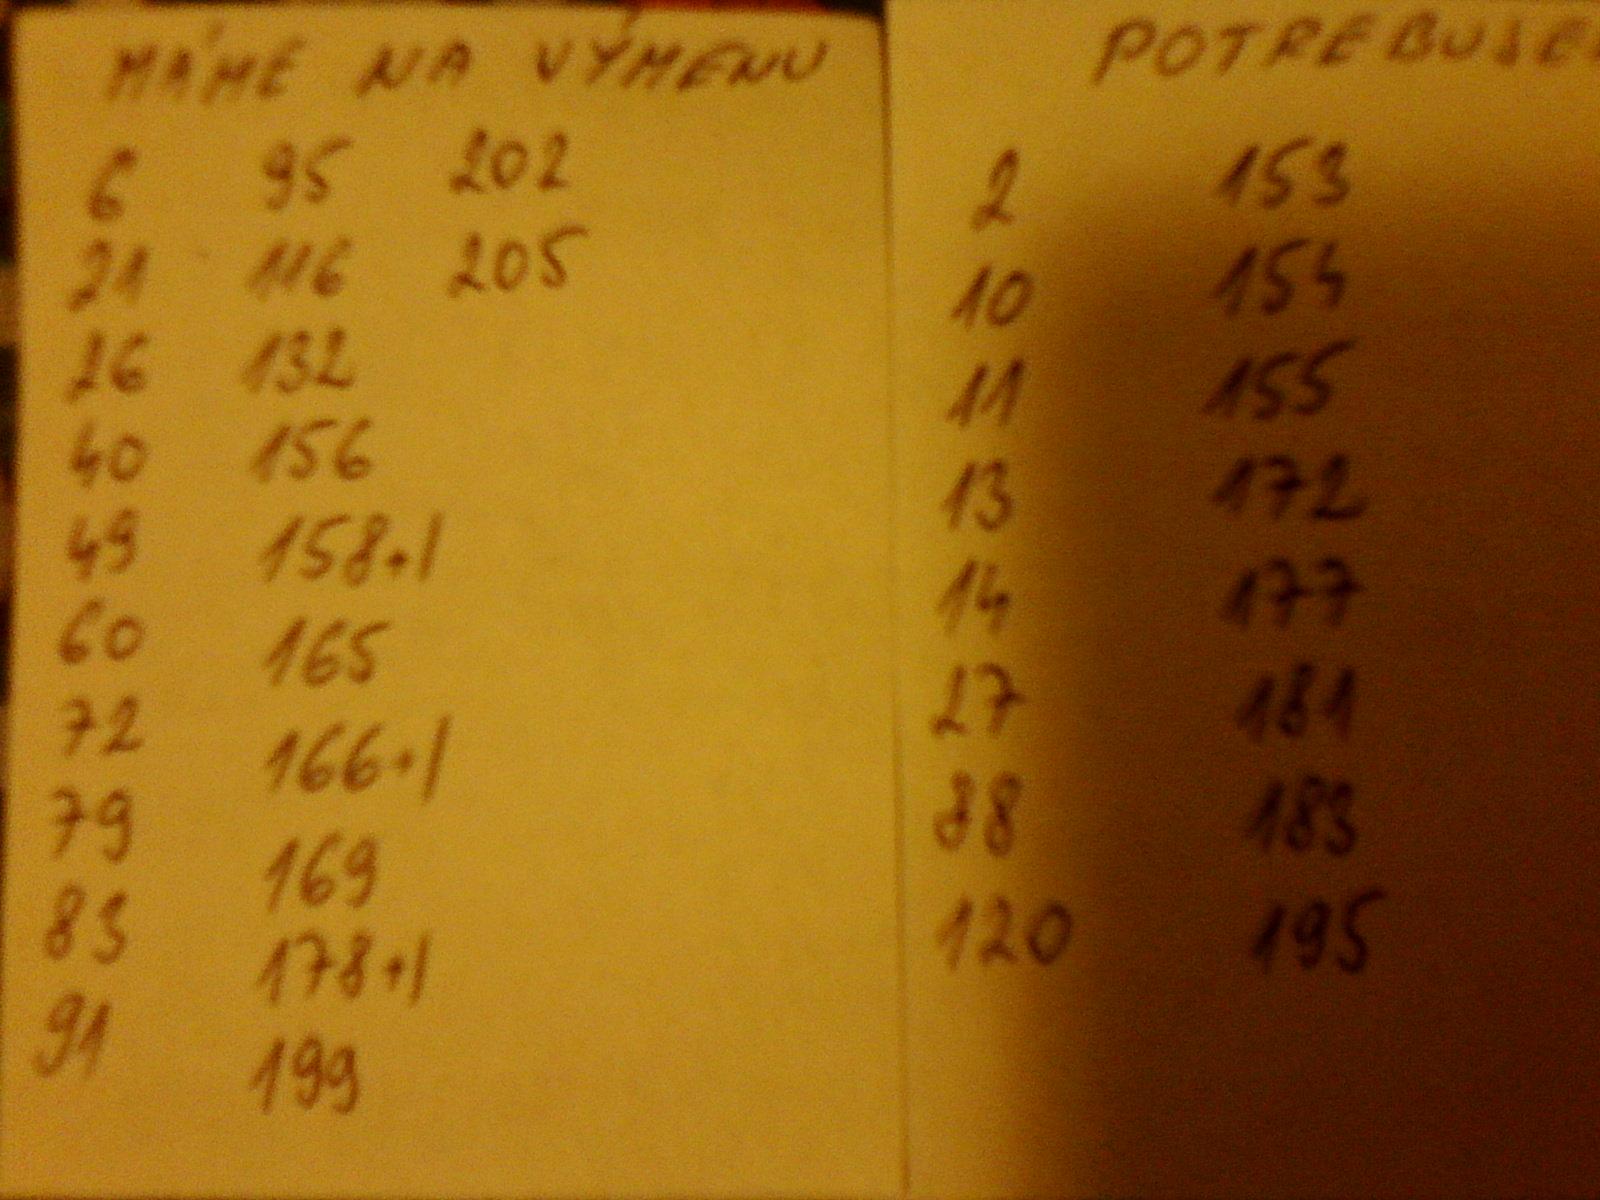 MÁME NA VÝMENU
6 95 202
21 116 205
26 132
40 156
49 158+1
60 165
72 166+1
79 169
83 178+1
91 199
POTREBUJE
2 153
10 154
11 155
13 172
14 177
27 181
88 183
120 195